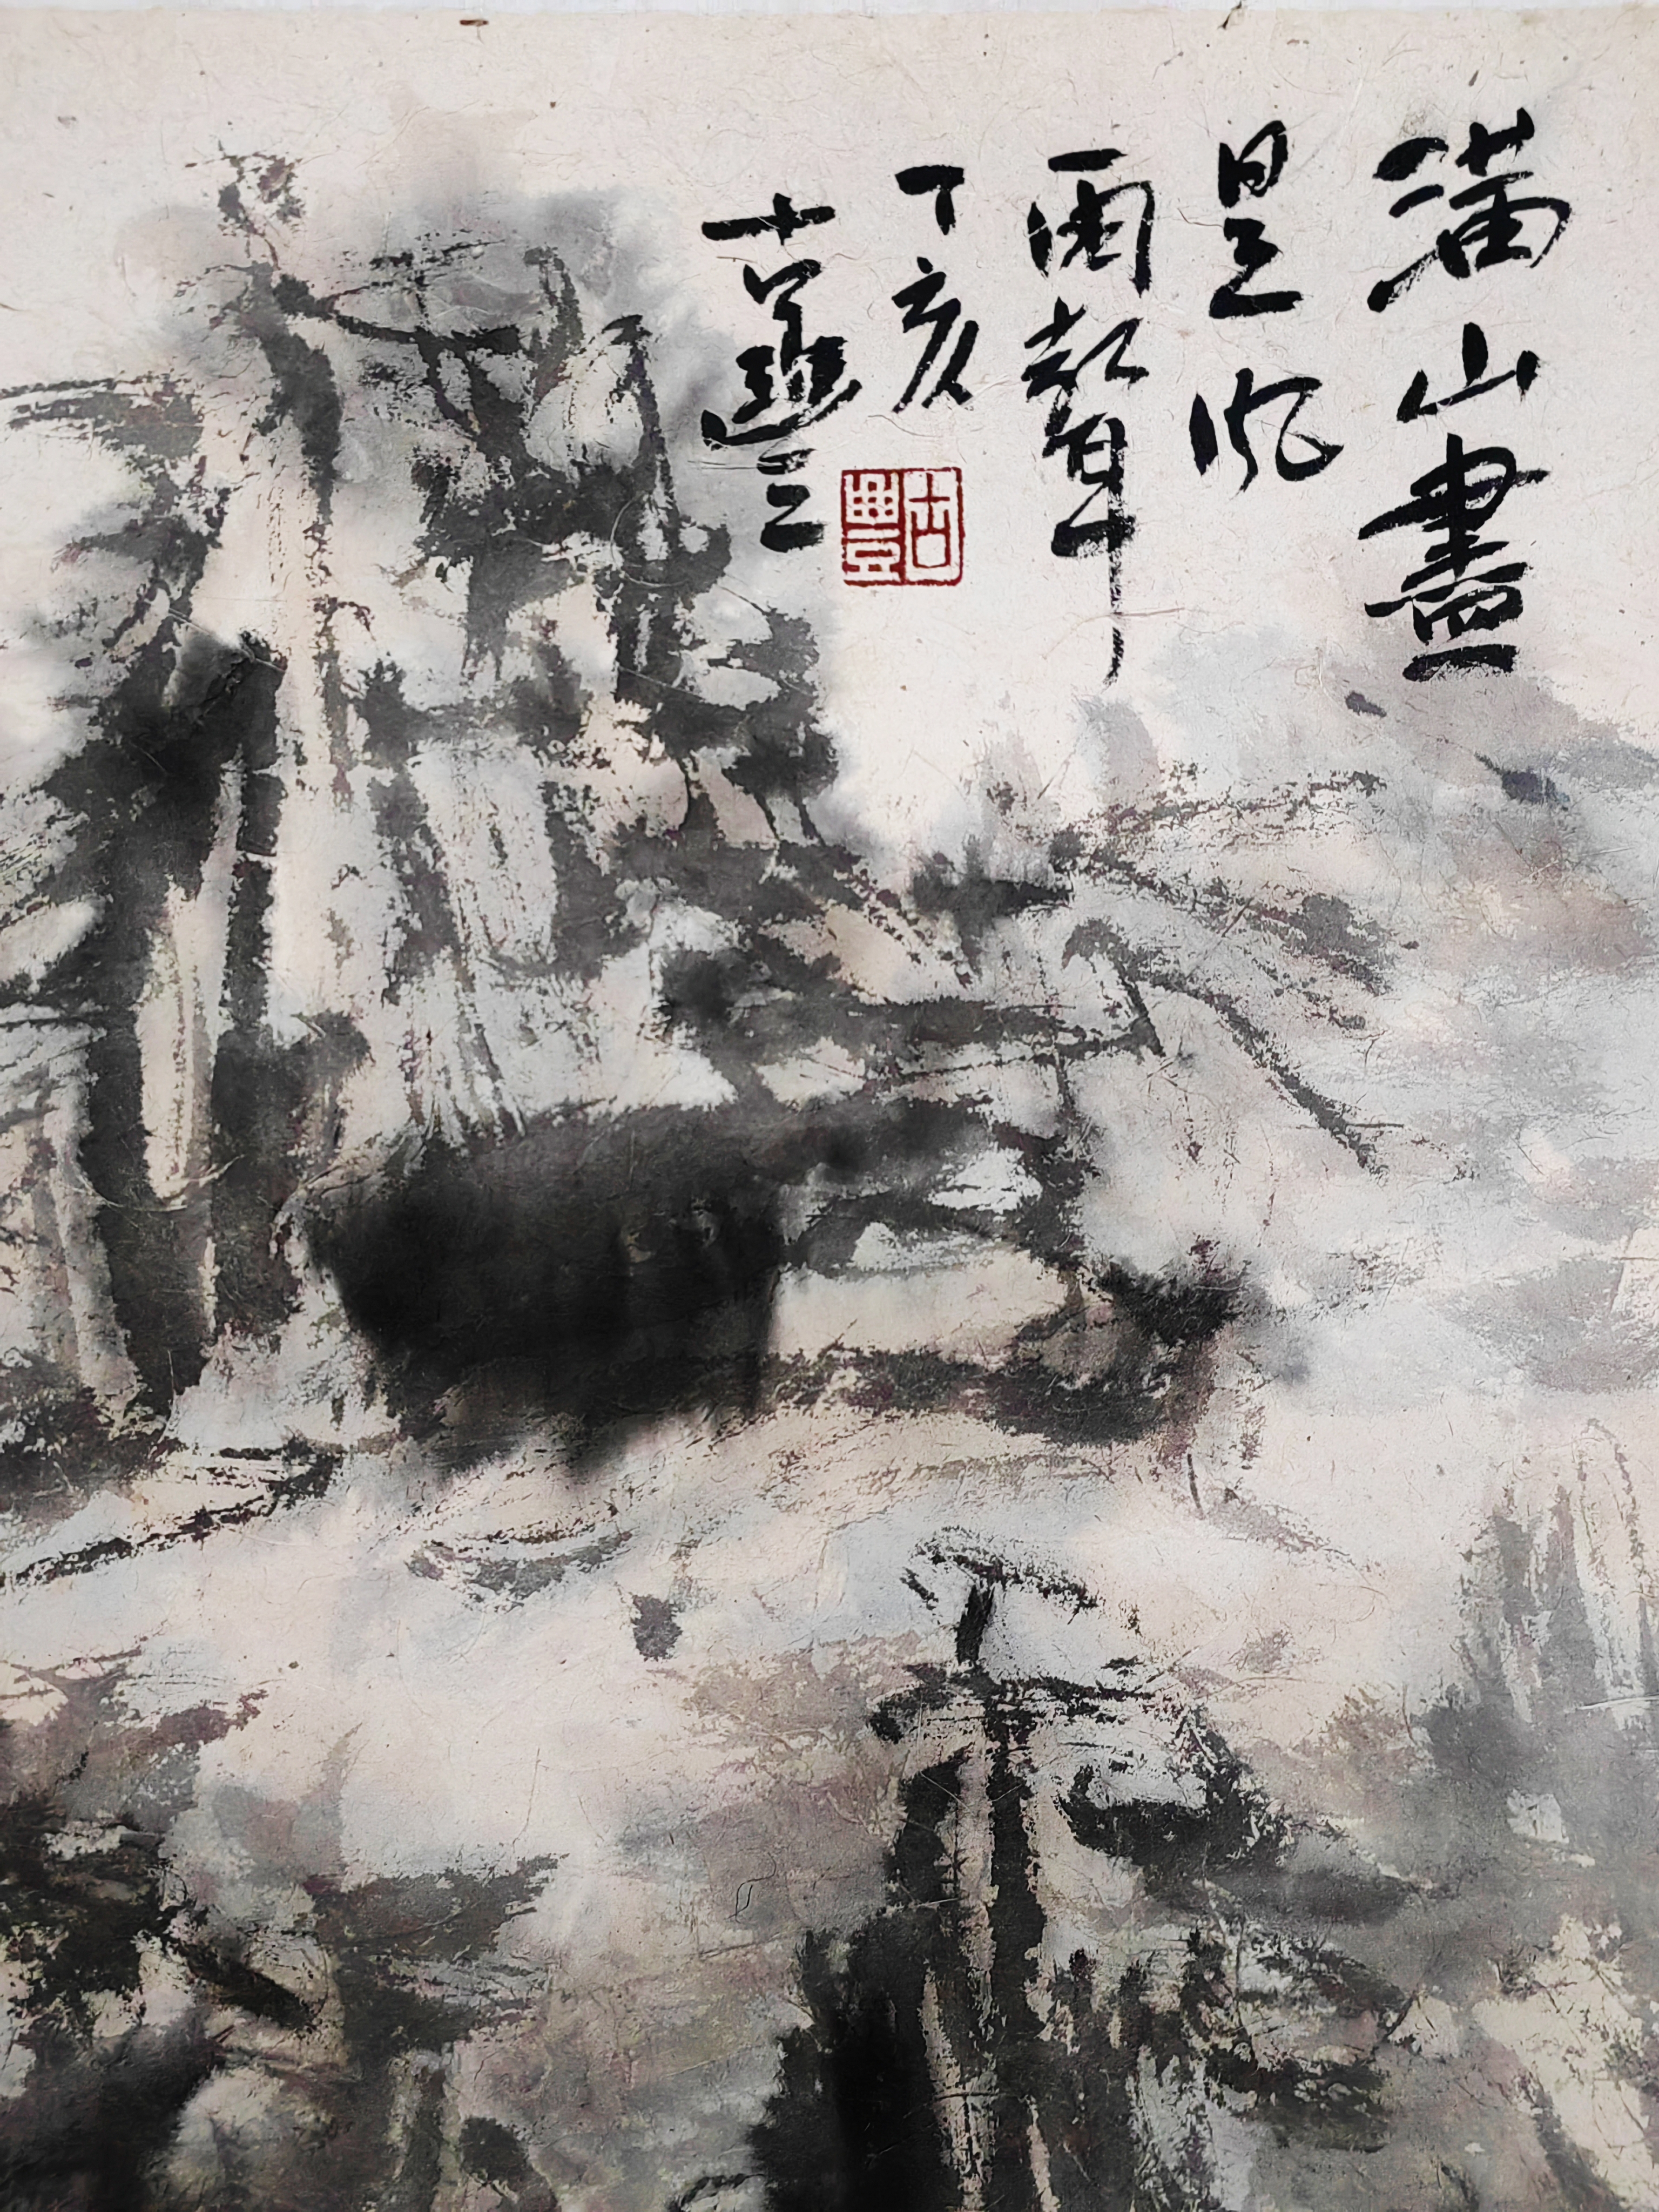 滿山盡
是風
雨聲
丁亥
古豐
古豐